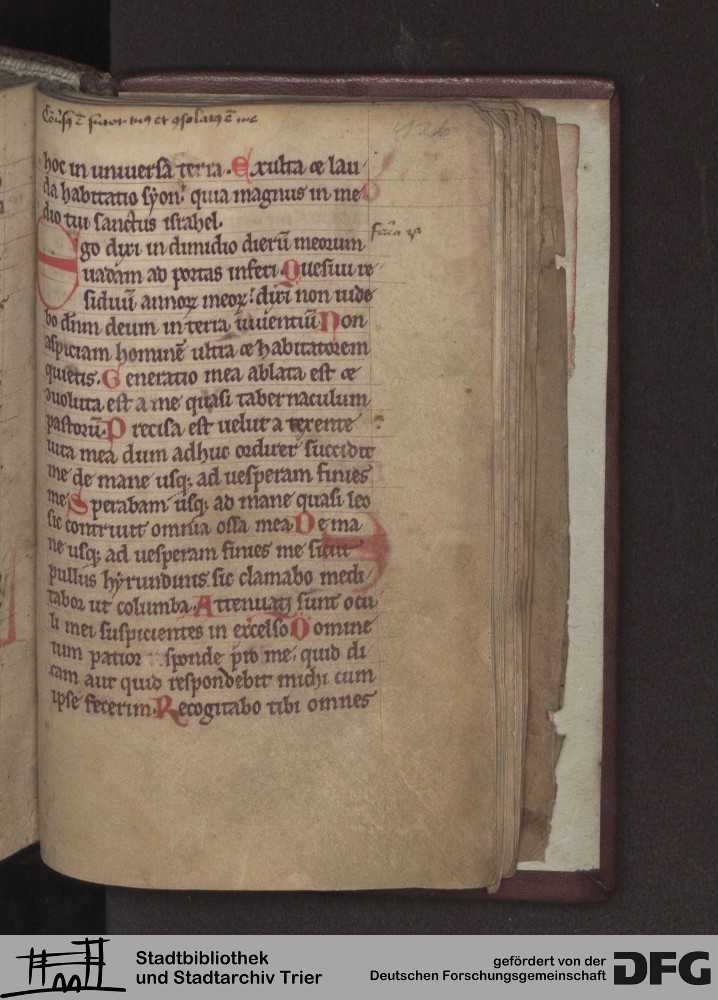 hoc in universa terra. Exulta et lau
da habitatio syon: quia magnus in me
dio tui sanctus israhel.
Ego dixi in dimidio dierū meorum
vadam ad portas inferi. Quesivi re
siduū annoꝝ meoꝝ: dixi non vide
bo dn̄m deum in terra viventiū. Non
aspiciam hominē ultra et habitatorem
quietis. Generatio mea ablata est et
convoluta est a me quasi tabernaculum
pastorū. Precisa est velut a texente
vita mea dum adhuc ordirer succidit
me de mane usq; ad vesperam finies
me. Sperabam usq; ad mane quasi leo
sic contrivit omnia ossa mea. De ma
ne usq; ad vesperam finies me sicut
pullus hyrundinis sic clamabo medi
tabor ut columba. Attenuati sunt ocu
li mei suspicientes in excelso. Domine
vim patior sponde pro me: quid di
cam aut quid respondebit michi cum
ipse fecerim. Recogitabo tibi omnes
Stadtbibliothek
und Stadtarchiv Trier
gefördert von der
Deutschen Forschungsgemeinschaft
DFG